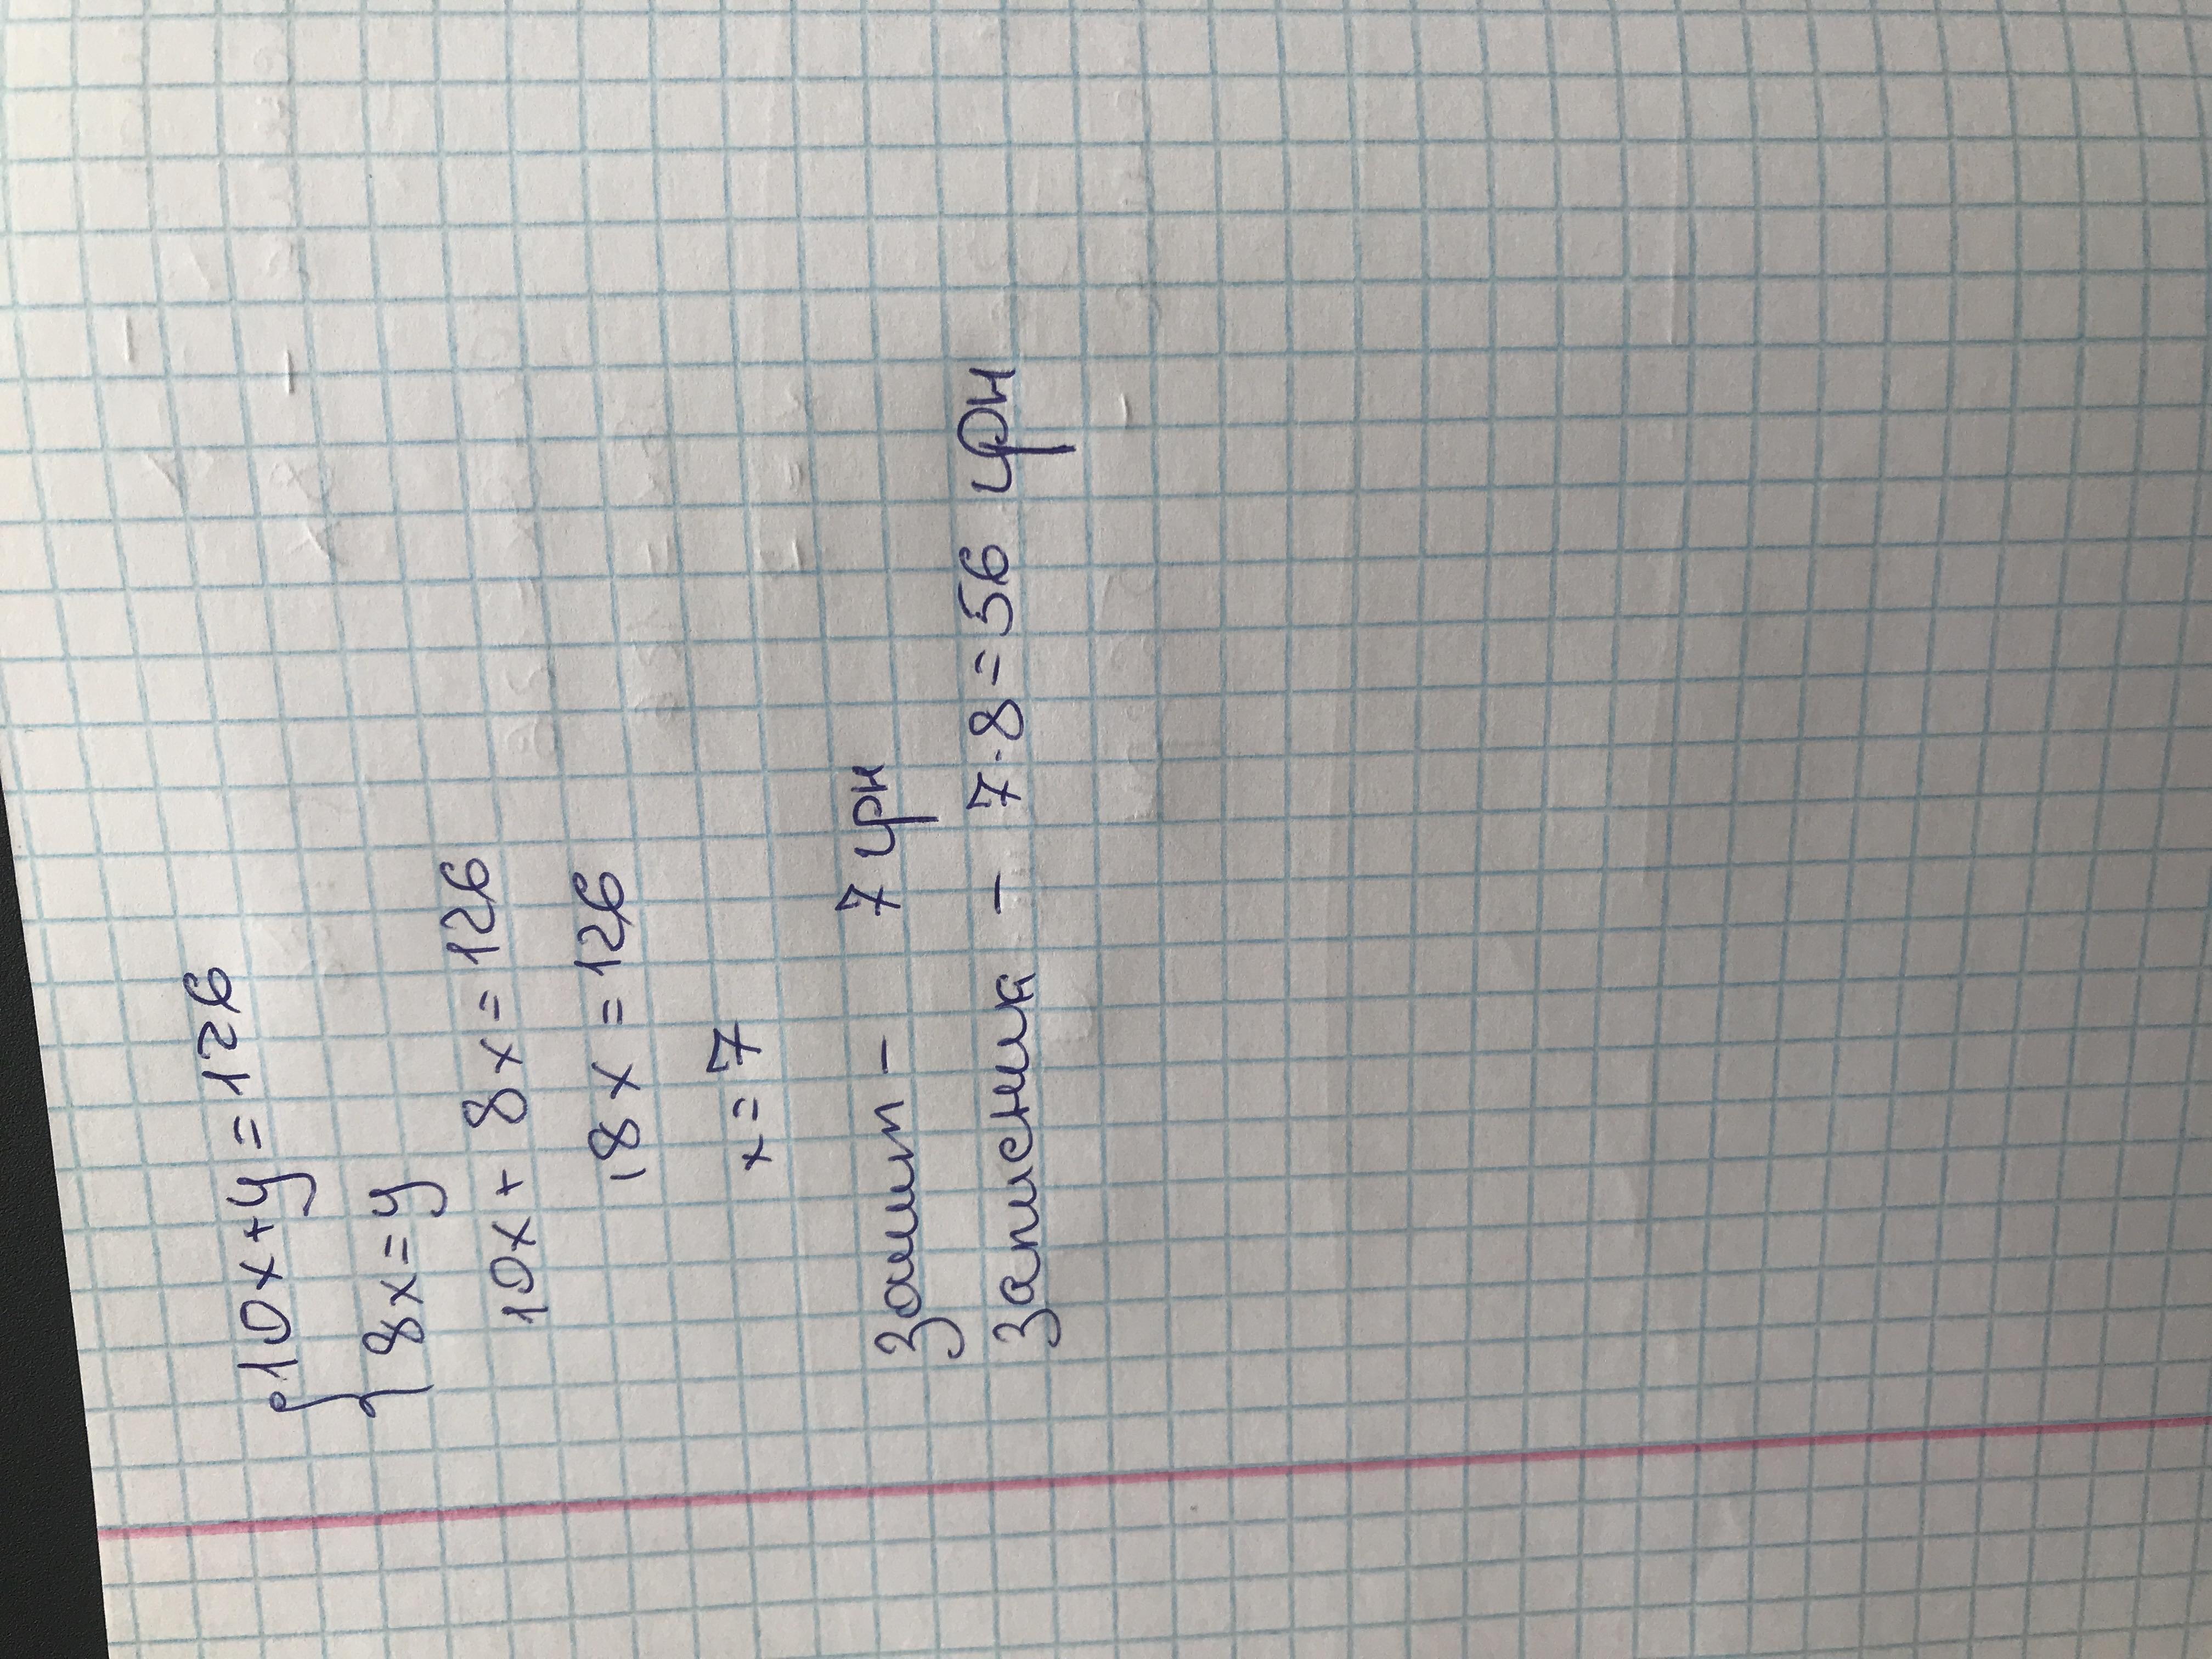 {10x+y=126
8x=y
10x+8x=126
18x=126
x=7
Зошит - 7 грн
Записник - 7·8=56 грн